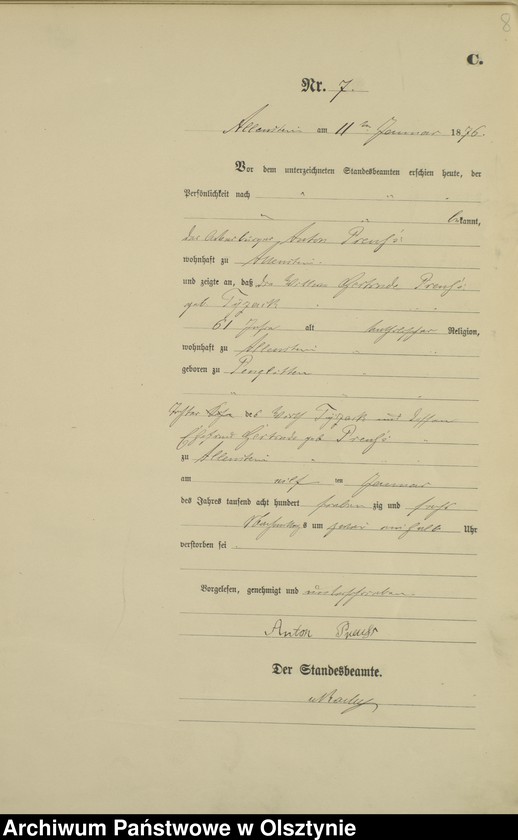 8
C.
Nr. 7.
Allenstein am 11ten Januar 1876.
Vor dem unterzeichneten Standesbeamten erschien heute, der
Persönlichkeit nach
bekannt,
der Ackerbürger Anton Preuß
wohnhaft zu Allenstein
und zeigte an, daß die Wittwe Gertrude Preuß
geb.
61 Jahr alt katholischer Religion,
wohnhaft zu Allenstein
geboren zu
Tochter des Wirth und
Ehefrau Gertrude geb. Preuß
zu Allenstein
am elf ten Januar
des Jahres tausend acht hundert sieben zig und sechs
Vormittags um zwei einhalb Uhr
verstorben sei
Vorgelesen, genehmigt und unterschrieben
Anton Preuß
Der Standesbeamte.
Archiwum Państwowe w Olsztynie